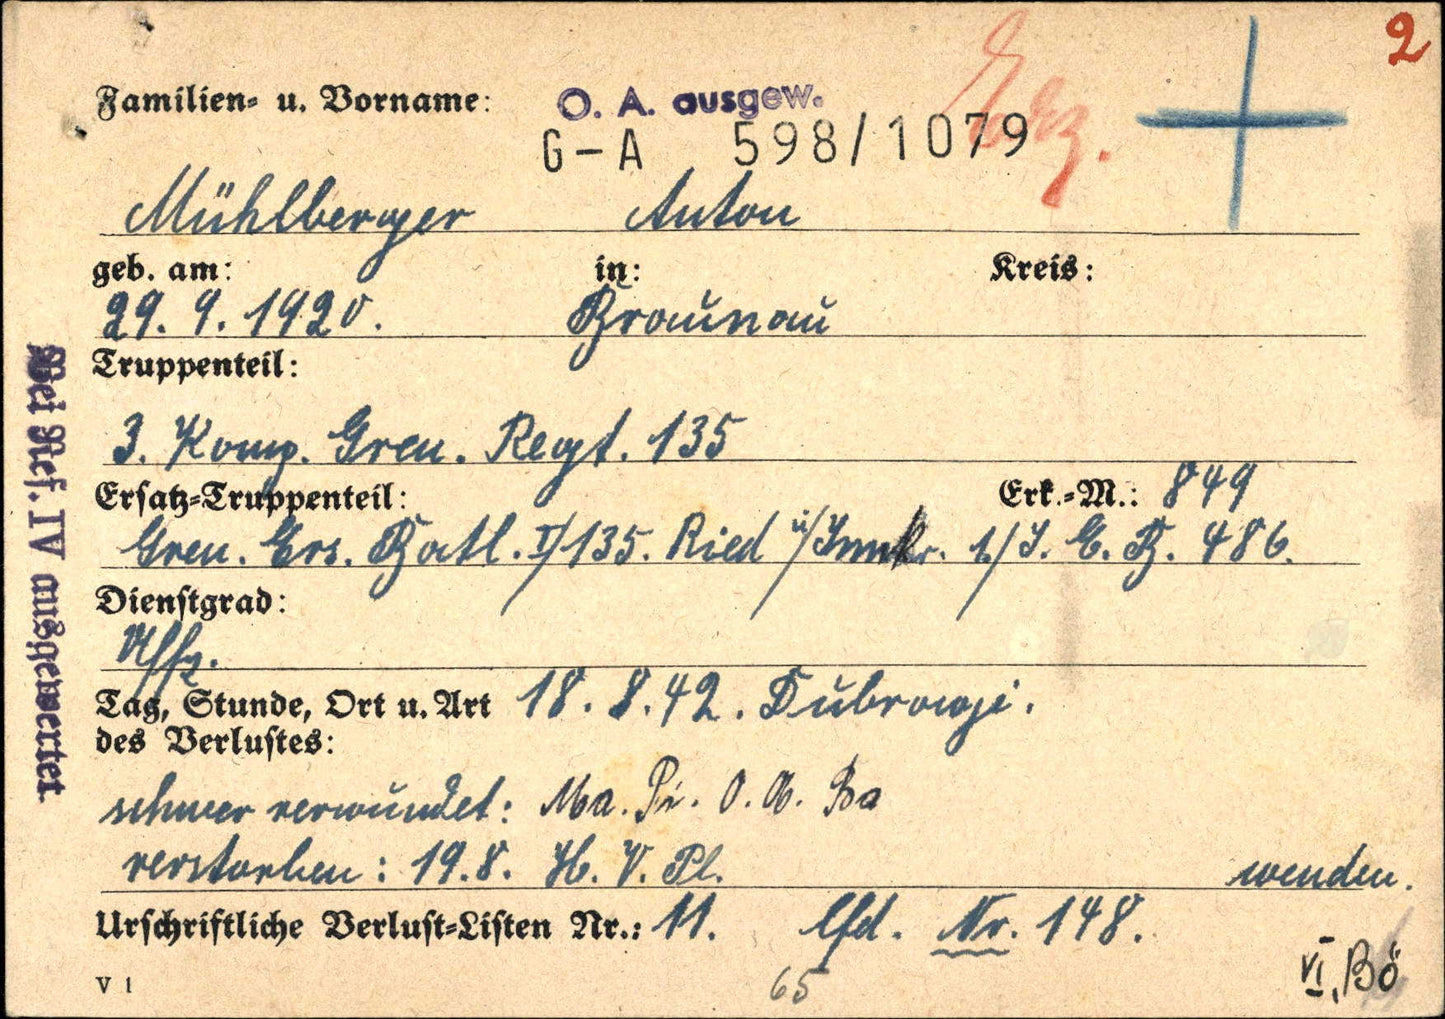 2
Familien- u. Vorname:
O. A. ausgew.
G-A 598/1079
Mühlberger Anton
geb. am: in: Kreis:
29. 9. 1920. Braunau
Truppenteil:
3. Komp. Gren. Regt. 135
Ersatz-Truppenteil: Erk.-M.: 849
Gren. Ers. Batl. I/135. Ried i/Innkr. 1./J. E. B. 486.
Dienstgrad:
Uffz.
Tag, Stunde, Ort u. Art 18. 8. 42.
des Verlustes:
schwer verwundet:
verstorben: 19. 8. H. V. Pl. wenden.
Urschriftliche Verlust-Listen Nr.: 11. lfd. Nr. 148.
V 1
65
VI, Bö
Bei Ref. IV ausgewertet